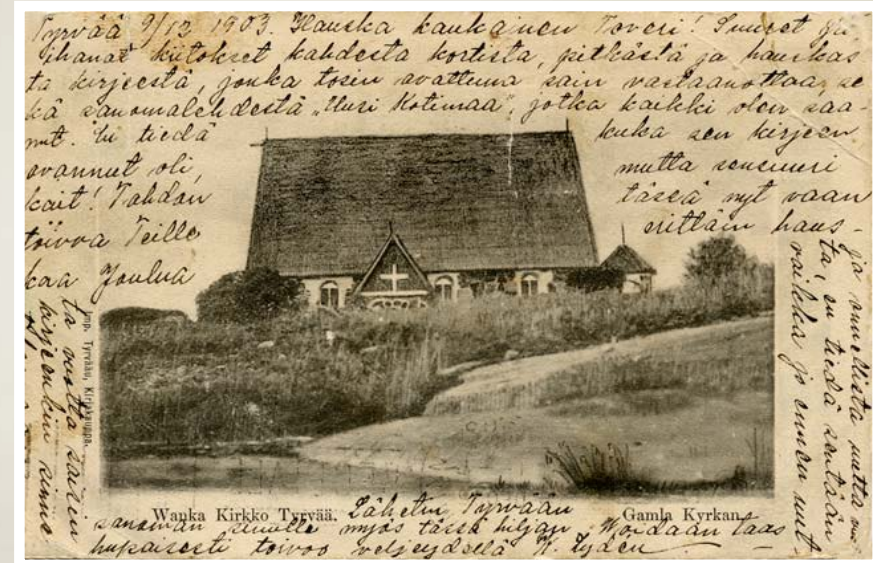 Tyrvää 9/12 1903. Hauska kaukainen Toveri! Suuret ja
ihanat kiitokset kahdesta kortista, pitkästä ja hauskas
ta kirjeestä, jonka tosin avattuna sain vastaanottaa, se
kä sanomalehdestä "Uusi Kotimaa", jotka kaikki olen saa-
nut. En tiedä kuka sen kirjeen
avannut oli, mutta sensuuri
kait! Tahdon tässä nyt vaan
toivoa Teille erittäin haus-
kaa Joulua
ja onnellista uutta
ta, en tiedä
vaikka jo ennen
ta vaikka
kirjeenkin
Imp. Tyrvään, Kirjakauppa.
Wanka Kirkko Tyrvää. Gamla Kyrkan.
Lähetin Tyrvään
sanoman myös tässä Woidaan taas
hupaisesti toivoo veljeydsellä